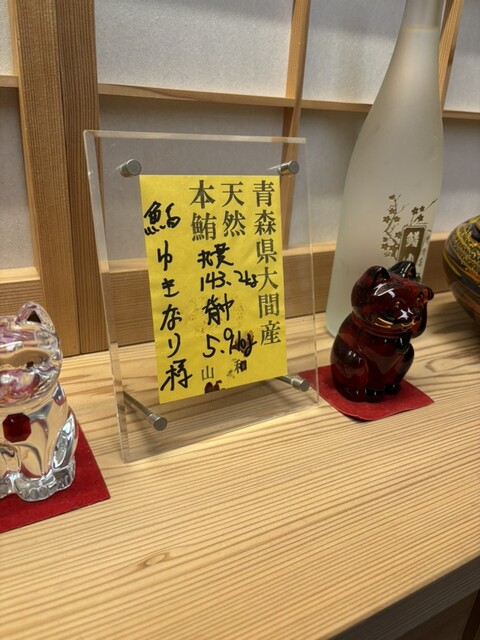 青森県大間産
天然
本鮪
143.2kg
背中
5.9kg
山和
鮨ゆきなり様